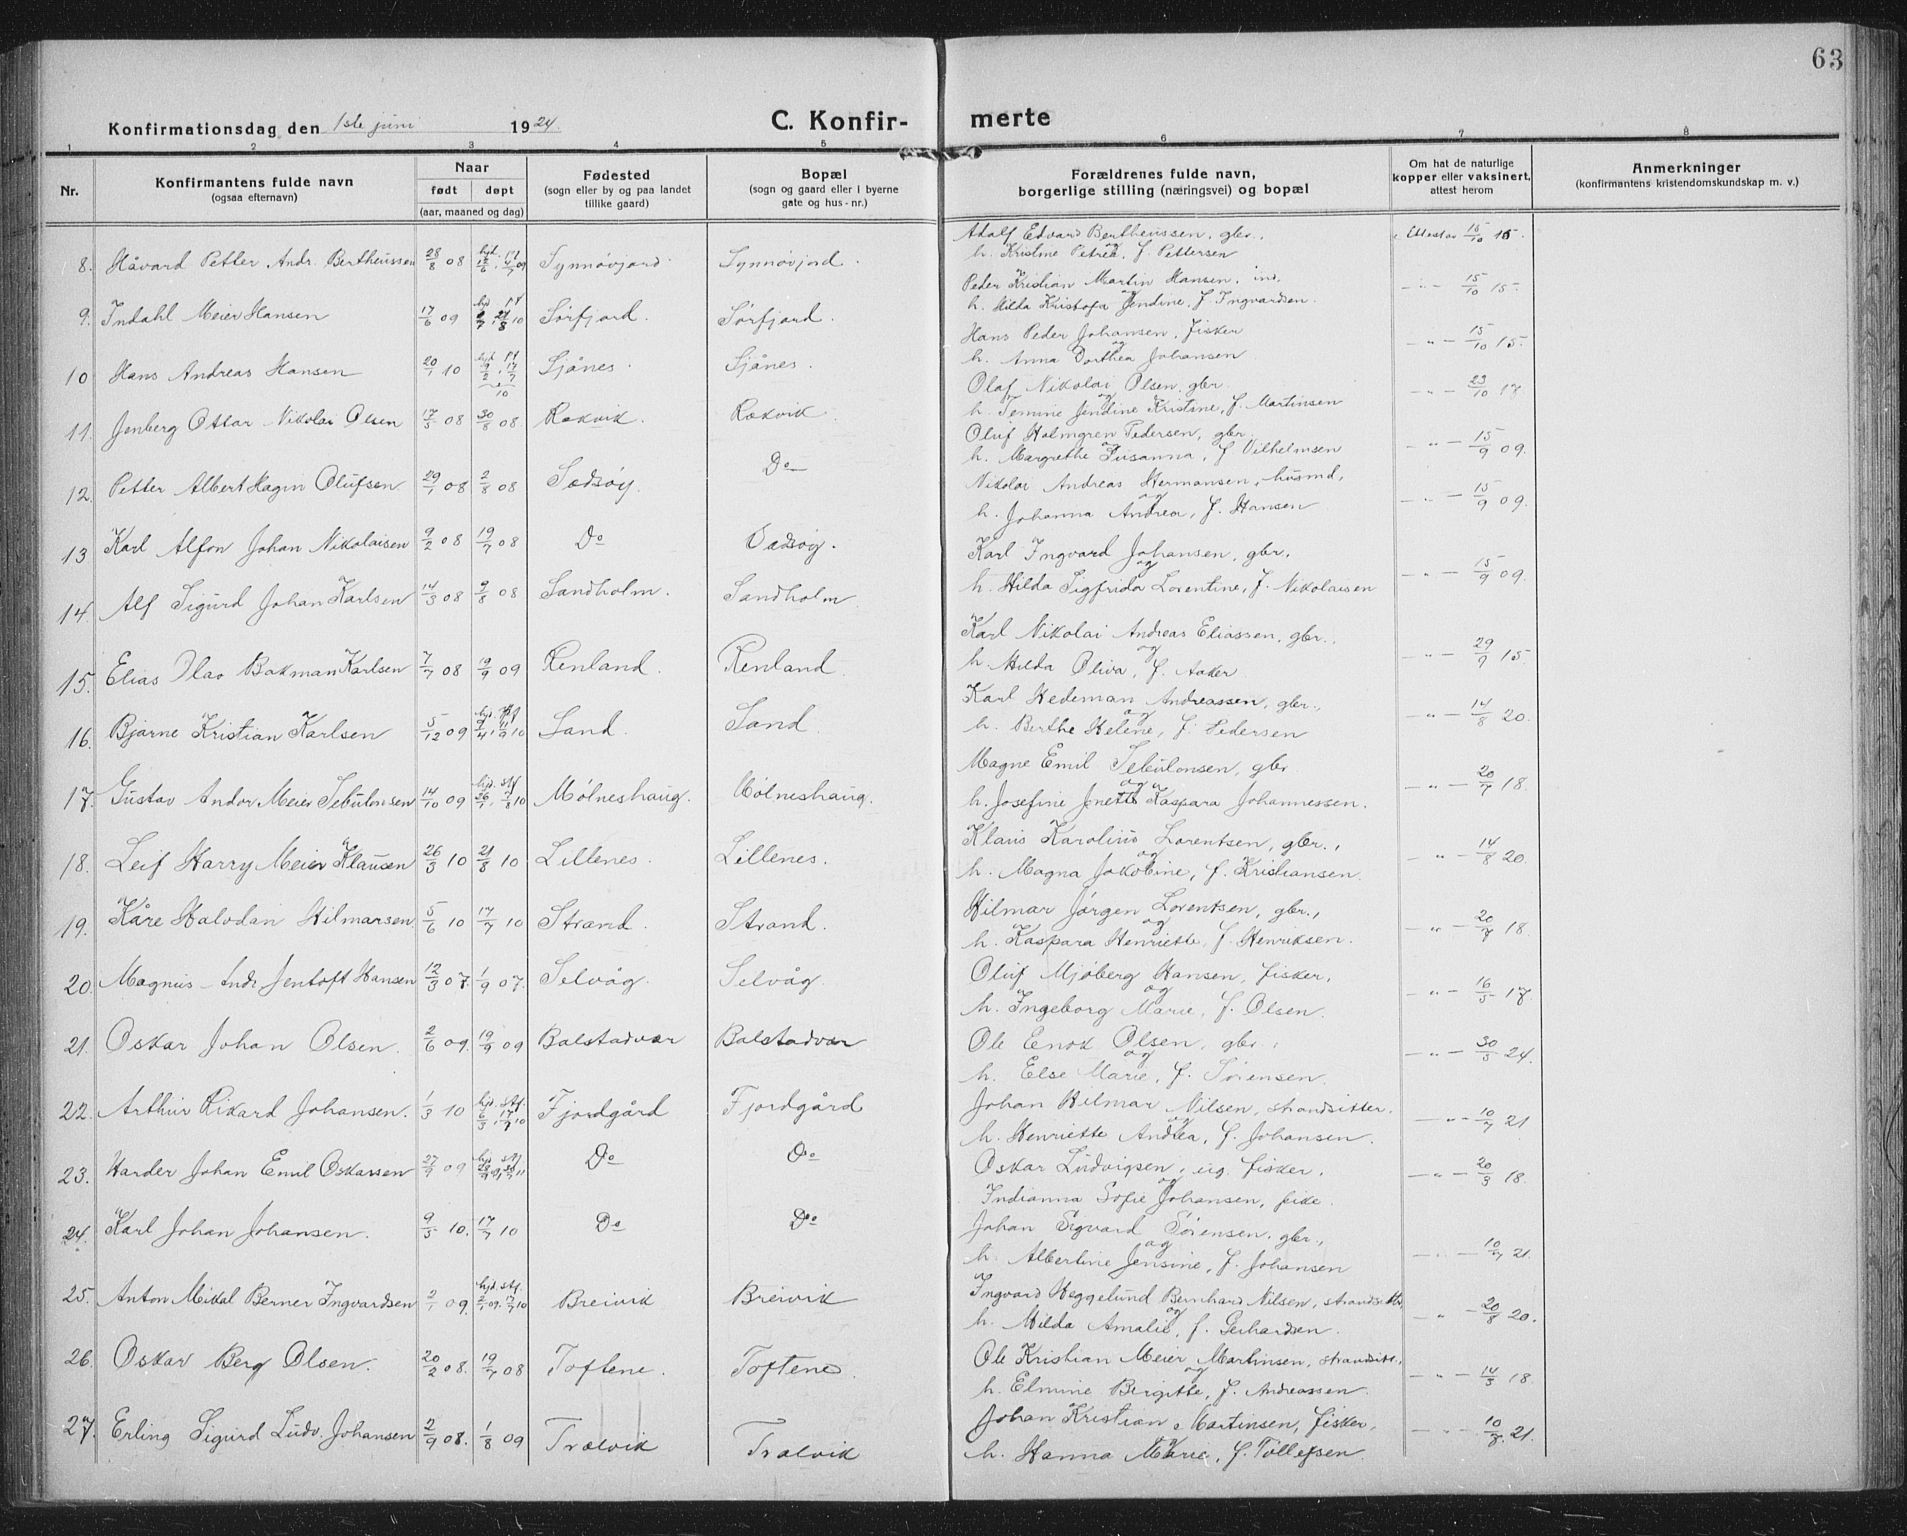 63
Konfirmationsdag den 1ste juni 1924
C. Konfir- merte
1 2 3 4 5 6 7 8
Nr.
Konfirmantens fulde navn
(ogsaa efternavn)
Naar
født døpt
(aar, maaned og dag)
Fødested
(sogn eller by og paa landet
tillike gaard)
Bopæl
(sogn og gaard eller i byerne
gate og hus-nr.)
Forældrenes fulde navn,
borgerlige stilling (næringsvei) og bopæl
Om hat de naturlige
kopper eller vaksinert,
attest herom
Anmerkninger
(konfirmantens kristendomskundskap m. v.)
8. Håvard Petter Andr. Bertheussen 28/8 08 Synnøvjord Synnøvjord
Adolf Edvard Bertheussen, gbr.,
og
h. Kristine Petrea, f. Pettersen
Attester 15/10 15.
9. Indahl Meier Hansen 17/6 09 Sørfjord. Sørfjord.
Peder Kristian Martin Hansen, ind.
og
h. Hilda Kristofa Jendine, f. Ingvardsen.
-"- 15/10 15.
10 Hans Andreas Hansen 20/1 10 Sjånes. Sjånes.
Hans Peder Johansen, fisker
og
h. Anna Dorthea Johansen
-"- 15/10 15.
11. Jenberg Ottar Nikolai Olsen 17/5 08 30/8 08. Rækvik. Rækvik.
Olaf Nikolai Olsen, gbr.
og
h. Temine Jendine Kristine, f. Martinsen
-"- 23/10 17
12. Petter Albert Hagin Olufsen 29/1 08 2/8 08 Do
Oluf Holmgren Pedersen, gbr.
og
h. Margrethe Susanna, f. Vilhelmsen
-"- 15/9 09.
13 Karl Alfon Johan Nikolaisen 9/2 08 19/7 08 Do
Nikolai Andreas Hermansen, husmd,
og
h. Johanna Andrea, f. Hansen
-"- 15/9 09.
14. Alf Sigurd Johan Karlsen 14/3 08 9/8 08 Sandholm. Sandholm
Karl Ingvard Johansen, gbr.
og
h. Hilda Sigfrida Lorentine, f. Nikolaisen
-"- 15/9 09.
15. Elias Olao Bakman Karlsen 7/7 08 19/9 09 Renland. Renland.
Karl Nikolai Andreas Eliassen, gbr.,
og
h. Hilda Oliva, f. Aaker
-"- 29/9 15.
16. Bjarne Kristian Karlsen 5/12 09 Sand. Sand
Karl Hedeman Andreassen, gbr.,
og
h. Berthe Helene, f. Pedersen
-"- 14/8 20.
17. Gustav Andor Meier Sebulonsen 14/10 09 Mølneshaug. Mølneshaug.
Magne Emil Sebulonsen, gbr
og
h. Josefine Jenette Kaspara Johannessen.
-"- 20/7 18.
18. Leif Harry Meier Klausen 26/3 10 21/8 10 Lillenes. Lillenes.
Klaus Karolius Lorentsen, gbr.,
og
h. Magna Jakobine, f. Kristiansen.
-"- 14/8 20.
19. Kåre Halvdan Hilmarsen 5/6 10 17/7 10 Strand. Strand.
Hilmar Jørgen Lorentsen, gbr.,
og
h. Kaspara Henriette, f. Henriksen.
-"- 20/7 18.
20. Magnus Andr. Jentoft Hansen 12/3 07. 1/9 07. Selvåg. Selvåg
Oluf Mjøberg Hansen, fisker,
og
h. Ingeborg Marie, f. Olsen.
-"- 16/5 17.
21. Oskar Johan Olsen. 2/6 09. 19/9 09 Balstadvær Balstadvær
Ole Enok Olsen, gbr.,
og
h. Else Marie, f. Sørensen.
-"- 30/5 24.
22. Arthur Rikard Johansen. 1/3 10 Fjordgård Fjordgård
Johan Hilmar Nilsen, strandsitter.
og
h. Henriette Andrea, f. Johansen.
-"- 10/7 21
23. Harder Johan Emil Oskarssen 27/9 09 Do Do
Oskar Ludvigsen, ug. fisker,
og
Indianna Sofie Johansen, pike.
-"- 20/3 18.
24. Karl Johan Johansen. 9/5 10. 17/7 10 Do Do
Johan Sigvard Sørensen, gbr.,
og
h. Albertine Jensine, f. Johansen
-"- 10/7 21.
25. Anton Mikal Berner Ingvardsen 2/1 09. Breivik Breivik
Ingvard Heggelund Bernhard Nilsen, strandsitter,
og
h. Hilda Amalie, f. Gerhardsen.
-"- 20/8 20.
26. Oskar Berg Olsen. 20/2 08. 19/7 08 Toftene. Toftene.
Ole Kristian Meier Martinsen, strandsitt.,
og
h. Elmine Birgitte, f. Andreassen.
-"- 14/3 18.
27. Erling Sigurd Ludv. Johansen 2/9 08. 1/8 09 Trælvik Trælvik
Johan Kristian Martinsen, fisker,
og
h. Hanna Marie, f. Tollefsen.
-"- 10/8 21.